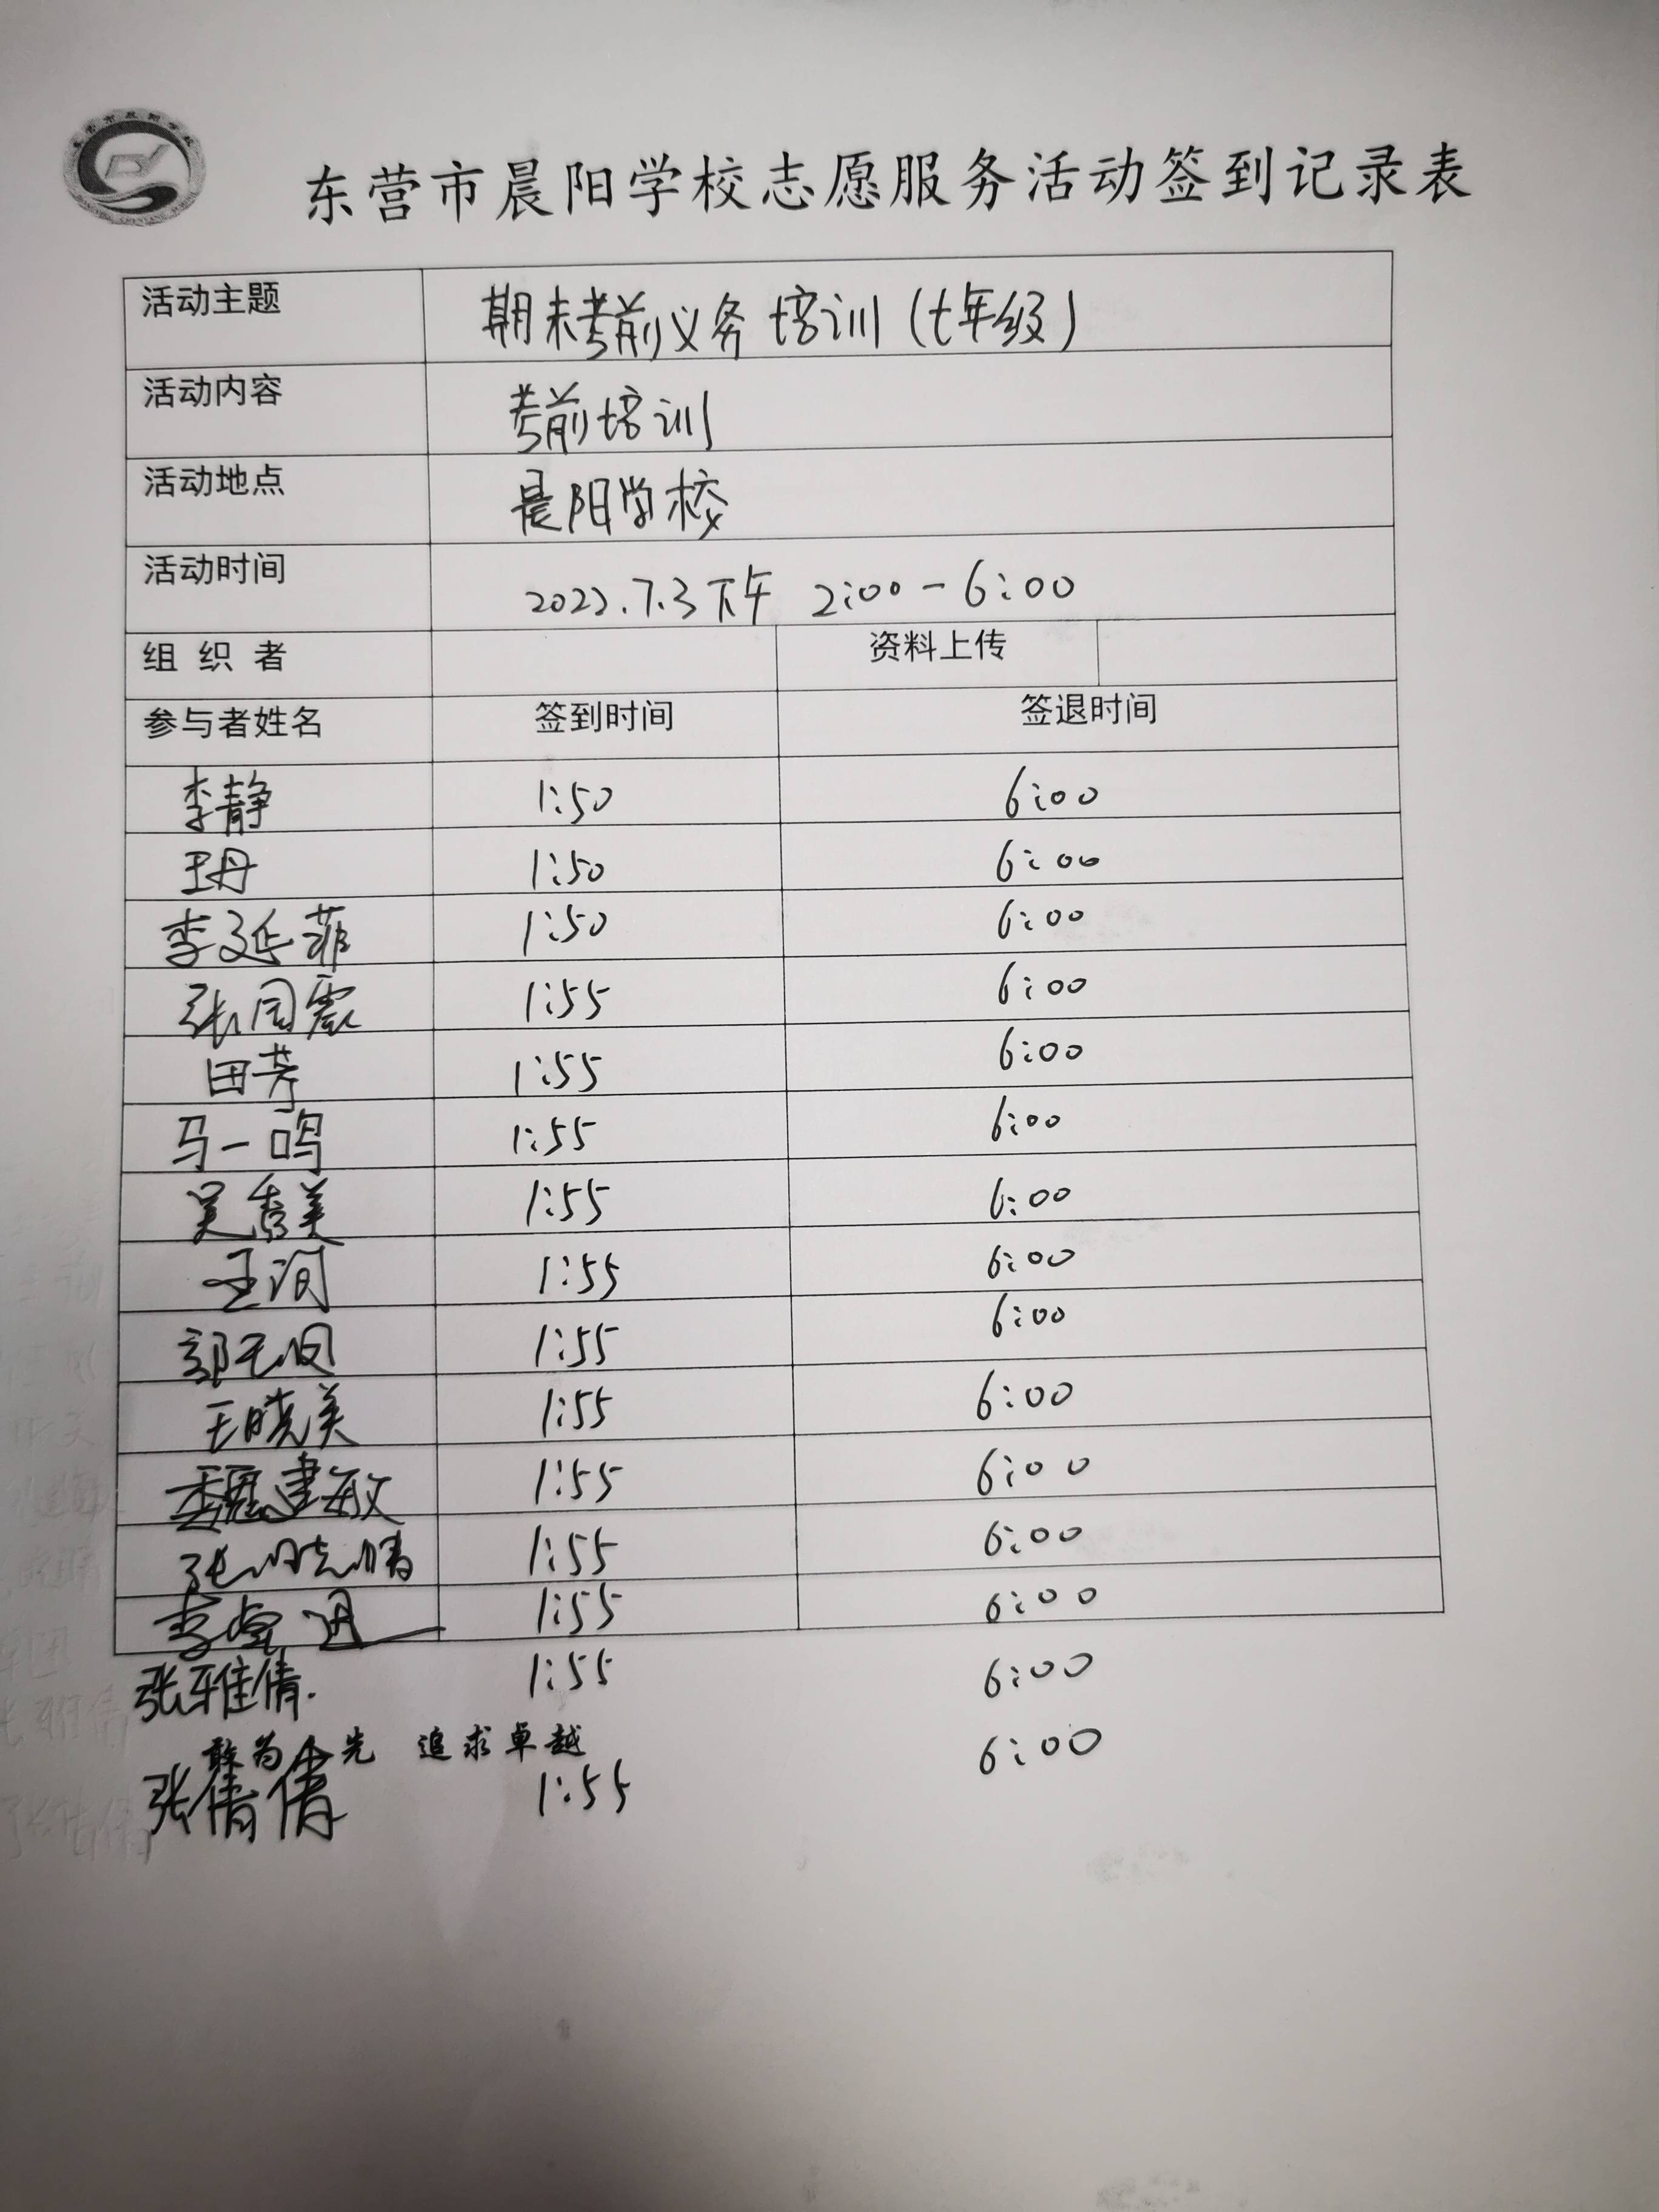 东营市晨阳学校志愿服务活动签到记录表
活动主题 期末考前义务培训(七年级)
活动内容 考前培训
活动地点 晨阳学校
活动时间 2022.7.3下午 2:00-6:00
组织者 资料上传
参与者姓名 签到时间 签退时间
李静 1:50 6:00
王丹 1:50 6:00
李延菲 1:50 6:00
张同震 1:55 6:00
田芳 1:55 6:00
马一鸣 1:55 6:00
吴秀美 1:55 6:00
王润 1:55 6:00
1:55 6:00
王晓美 1:55 6:00
魏建敏 1:55 6:00
张晓倩 1:55 6:00
李 1:55 6:00
张雅倩. 1:55 6:00
敢为人先 追求卓越
张倩倩 1:55 6:00